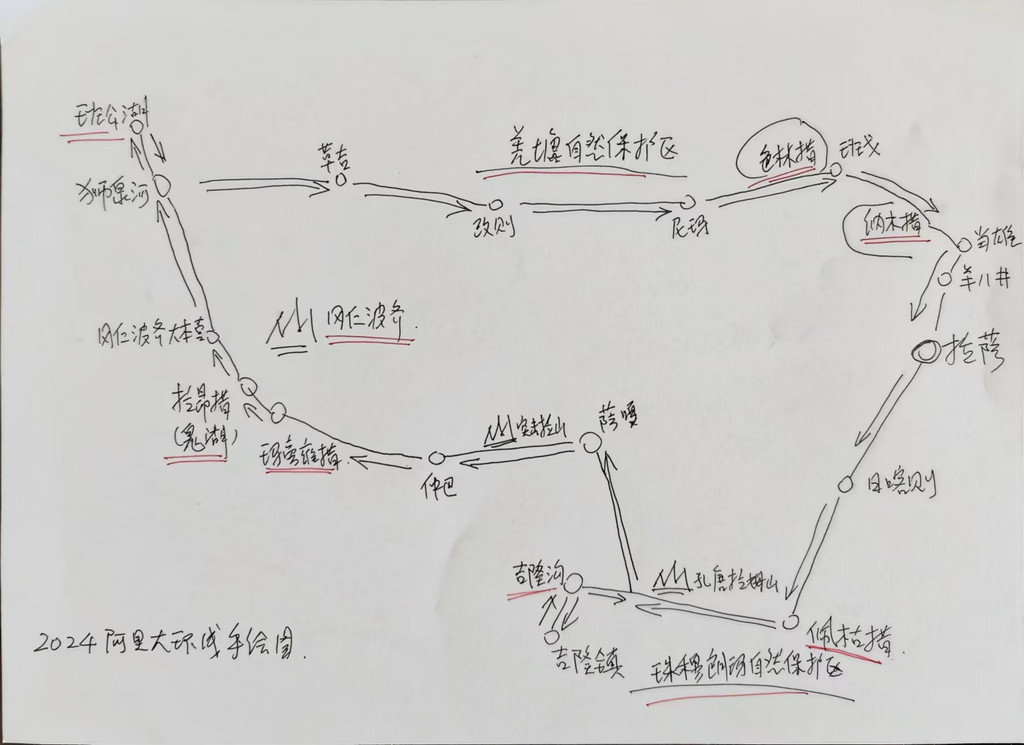 班公湖
狮泉河
革吉
改则
羌塘自然保护区
尼玛
色林措
班戈
纳木措
当雄
羊八井
拉萨
冈仁波齐大本营
冈仁波齐
拉昂措
(鬼湖)
玛旁雍措
仲巴
突击拉山
萨嘎
日喀则
吉隆沟
孔唐拉姆山
佩枯措
吉隆镇
珠穆朗玛自然保护区
2024阿里大环线手绘图